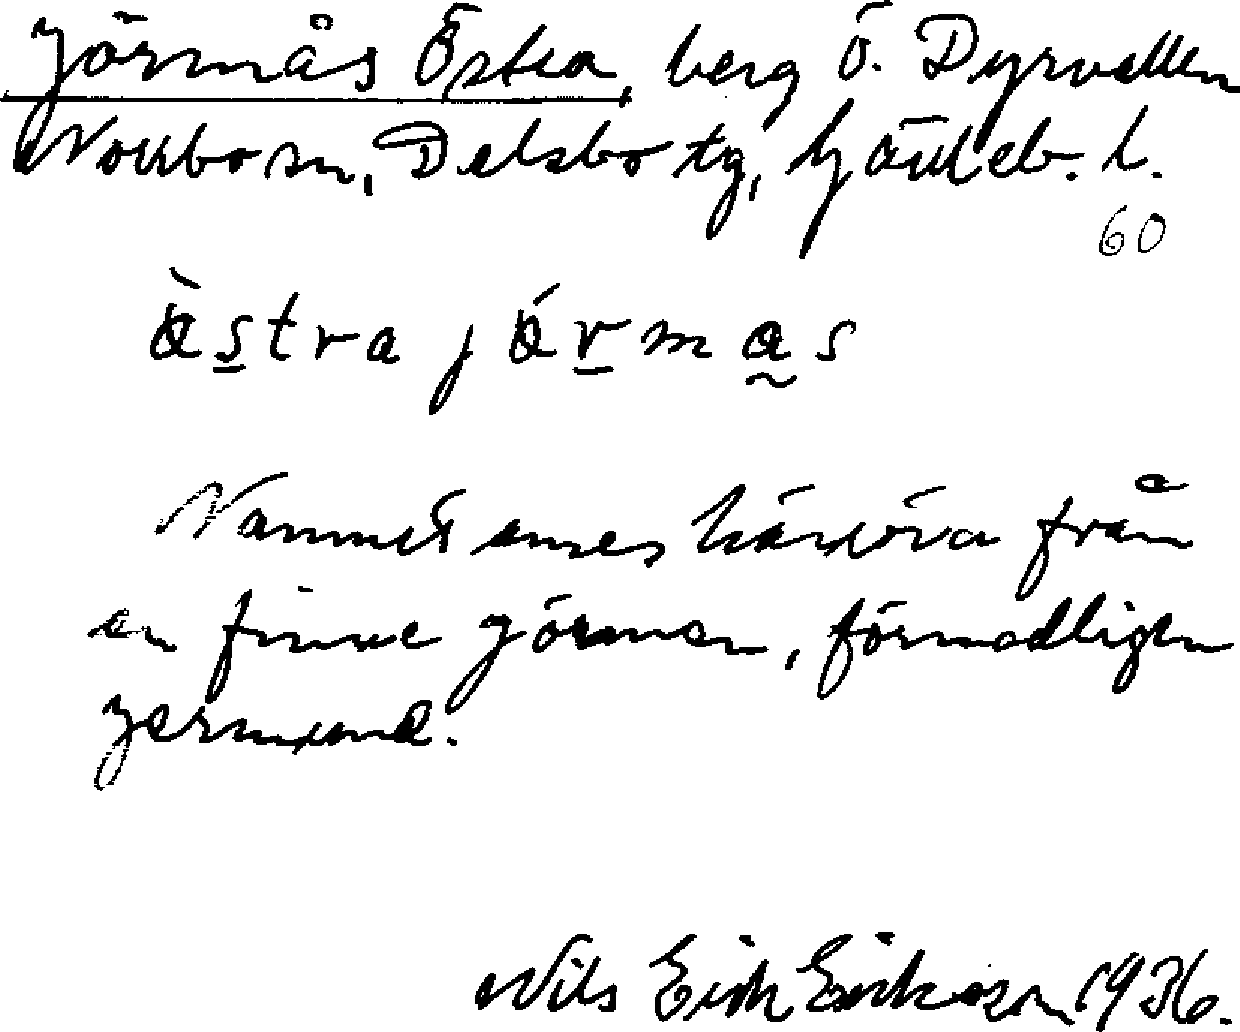 Görmås Östra, berg Ö. Dyrvallen
Norrbo sn, Delsbo tg, Gävleb. l.
60
àstra jármas
Namnet anses härröra från
en finne Görman, förmodligen
Germund.
Nils Erik Eriksson 1936.